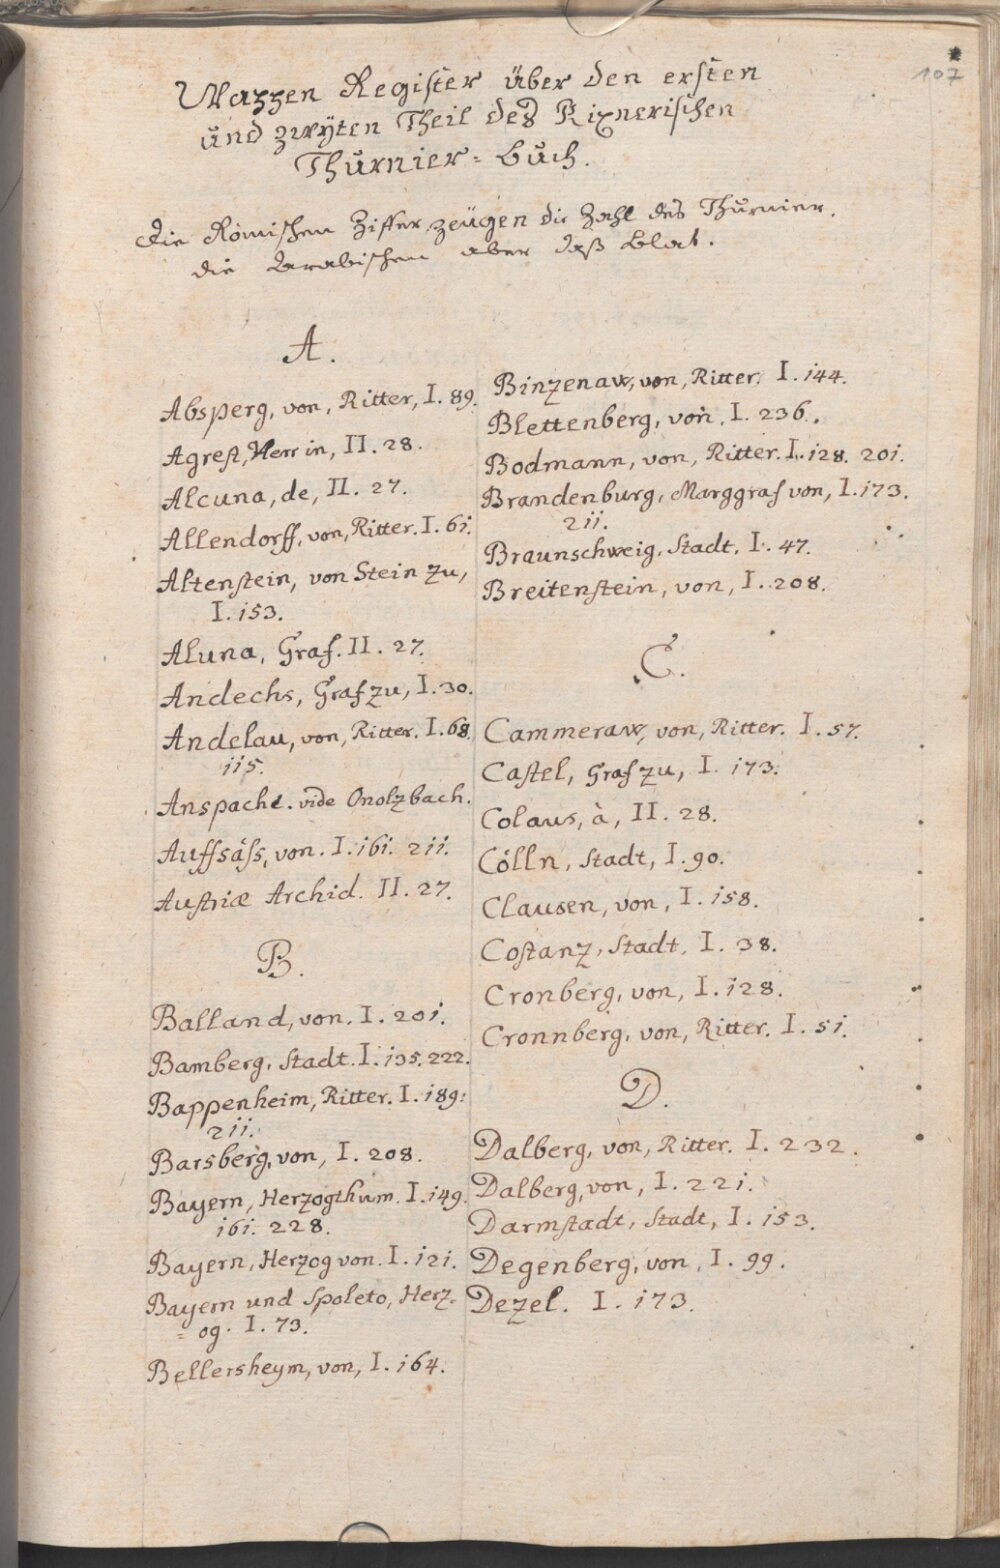 107
Wappen Register über den ersten
und zweÿten Theil des Rixnerischen
Thurnier-Buch.
Die Römischen Ziffer zeügen die Zahl des Thurnier.
die Arabischen aber daß Blat.
A.
Absperg, von, Ritter, I. 89.
Agrest, Herr in, II. 28.
Alcuna, de, II. 27.
Allendorff, von, Ritter. I. 61.
Altenstein, von Stein zu,
I. 153.
Aluna, Graf. II. 27.
Andechs, Graf zu, I. 30.
Andelau, von, Ritter. I. 68.
115.
Anspach. vide Onolzbach.
Auffsäss, von. I. 161. 211.
Austriæ Archid. II. 27.
B.
Balland, von. I. 201.
Bamberg, Stadt. I. 135. 222.
Bappenheim, Ritter. I. 189.
211.
Barsberg, von, I. 208.
Bayern, Herzogthum. I. 149.
161. 228.
Bayern, Herzog von. I. 121.
Bayern und Spoleto, Herz-
=og. I. 73.
Bellersheym, von, I. 164.
Binzenaw, von, Ritter. I. 144.
Blettenberg, von. I. 236.
Bodmann, von, Ritter. I. 128. 201.
Brandenburg, Marggraf von, I. 173.
211.
Braunschweig, Stadt, I. 47.
Breitenstein, von, I. 208.
C.
Cammeraw, von, Ritter. I. 57.
Castel, Graf zu, I. 173.
Colaus, à, II. 28.
Cölln, Stadt, I. 90.
Clausen, von, I. 158.
Costanz, Stadt, I. 38.
Cronberg, von, I. 128.
Cronnberg, von, Ritter. I. 51.
D.
Dalberg, von, Ritter. I. 232.
Dalberg, von, I. 221.
Darmstadt, Stadt, I. 153.
Degenberg, von, I. 99.
Dezel. I. 173.